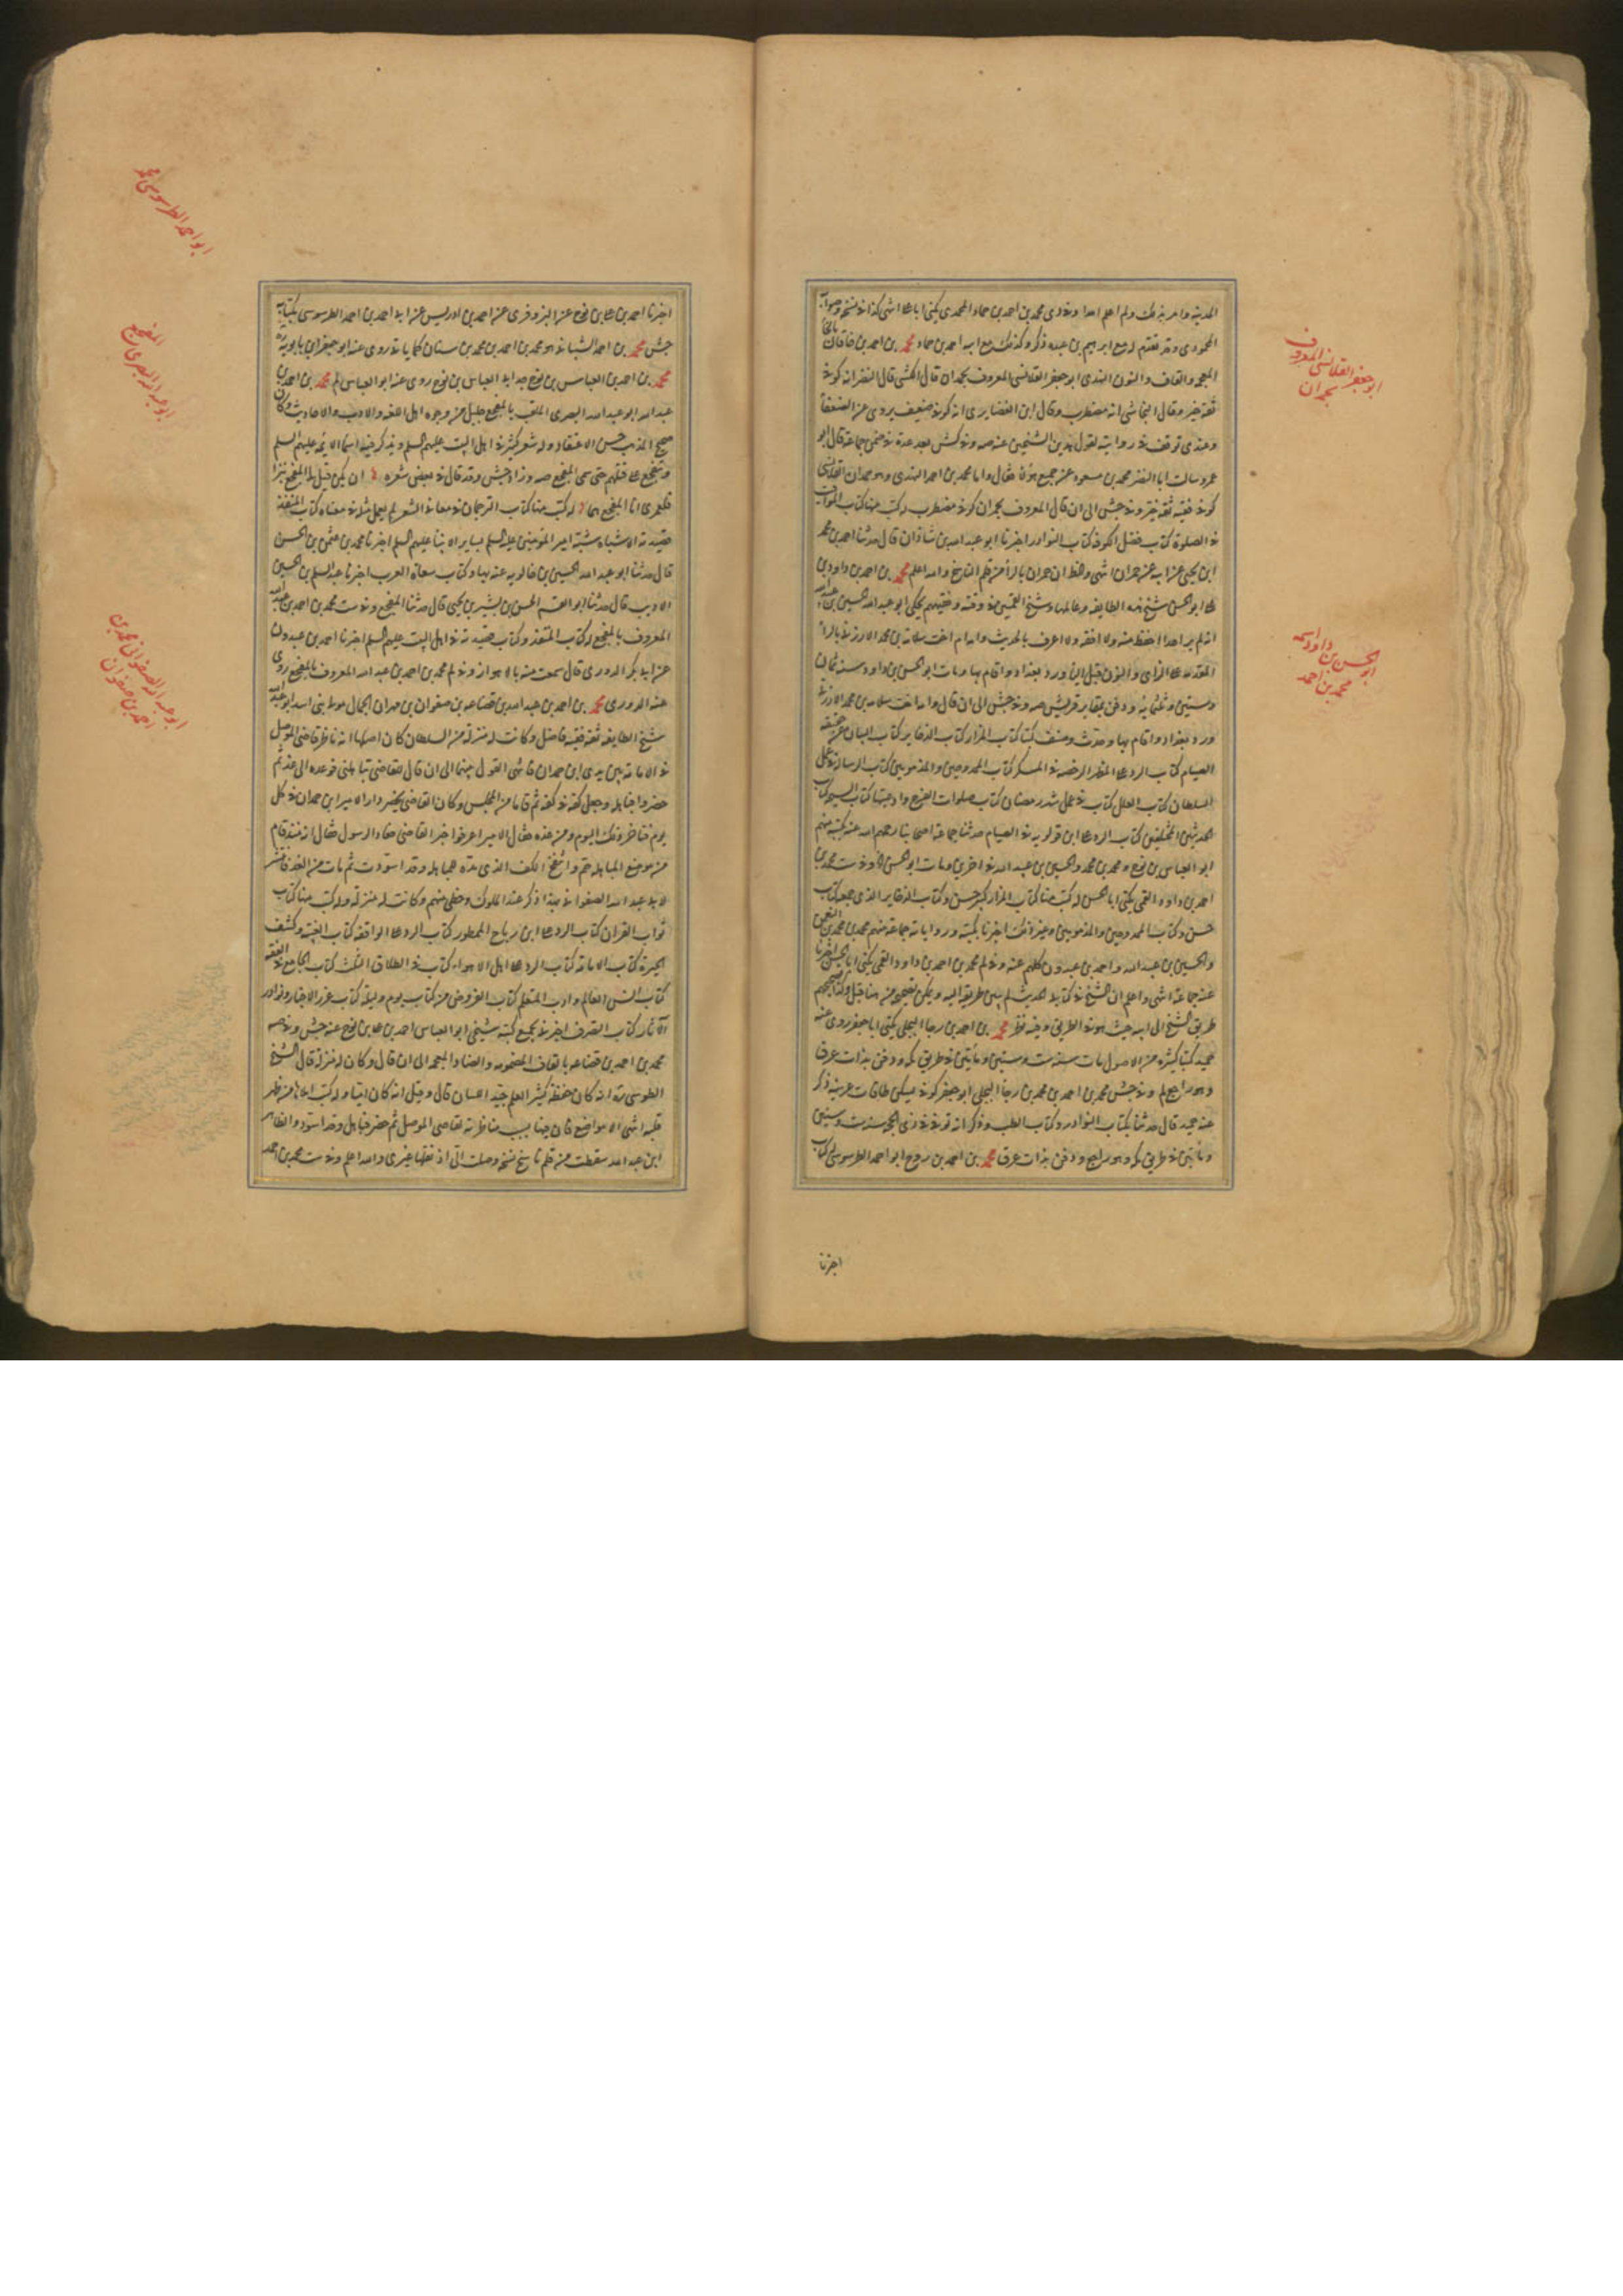 ابو جعفر القلانسى المعروف
بحمدان
ابو الحسن بن داود اسمه
محمد بن احمد
المحمودى وقد تقدم مع ابرهيم بن عبده ذكره وكذلك مع ابيه احمد بن حماد محمد بن احمد بن خاقان
المعجمه والقاف والنون النهدى ابو جعفر القلانسى المعروف بحمدان قال الكشى قال النضر انه كوفى
ثقه خير وقال النجاشى انه مضطرب وقال ابن الغضايرى انه كوفى ضعيف يروى عن الضعفا
وعندى توقف فى روايته لقول هذين الشيخين عنه صه وفى كش بعد عدة فى ضمن جماعة قال ابو
عمرو سالت ابا النضر محمد بن مسعود عن جميع هؤلاء فقال واما محمد بن احمد النهدى وهو حمدان القلانسى
كوفى فقيه ثقه خير وفى جش الى ان قال المعروف بحمران كوفى مضطرب له كتب منها كتاب المواقيت
فى الصلوة كتاب فضل الكوفه كتاب النوادر اخبرنا ابو عبد الله بن شاذان قال حدثنا احمد بن محمد
ابن يحيى عن ابيه عن حمران انتهى وظنى ان حمران بالراء من قلم الناسخ والله اعلم محمد بن احمد بن داود بن
على ابو الحسن شيخ هذه الطايفه وعالمها وشيخ القميين فى وقته وفقيههم يحكى ابو عبد الله الحسين بن عبيد الله
انه لم ير احدا احفظ منه ولا افقه ولا اعرف بالحديث وامه ام اخت سلامه بن محمد الارزنى بالراء
المقدمه على الزاى والنون قبل الياء ورد بغداد واقام بها ومات ابو الحسن بن داود سنه ثمان
وستين وثلثمائه ودفن بمقابر قريش صه وفى جش الى ان قال وامه اخت سلامه بن محمد الارزنى
ورد بغداد واقام بها وحدث وصنف كتبا كتاب المزار كتاب الذخاير كتاب البيان عن حقيقه
الصيام كتاب الرد على المظهر الرخصه فى المسكر كتاب الممدوحين والمذمومين كتاب الرسالة فى عمل
السلطان كتاب العلل كتاب فى عمل شهر رمضان كتاب صلوات الفرج وادعيتها كتاب السبحه كتاب
الحديثين المختلفين كتاب الرد على ابن قولويه فى الصيام حدثنا جماعة اصحابنا رحمهم الله عنه بكتبه منهم
ابو العباس بن نوح ومحمد بن محمد والحسين بن عبيد الله فى اخرين ومات ابو الحسن وفى ست محمد بن
احمد بن داود القمى يكنى ابا الحسن له كتب منها كتاب المزار كبير حسن وكتاب الذخاير الذى جمعه كتاب
حسن وكتاب الممدوحين والمذمومين وغير ذلك اخبرنا بكتبه ورواياته جماعة منهم محمد بن محمد بن النعمن
والحسين بن عبيد الله واحمد بن عبدون كلهم عنه وفى لم محمد بن احمد بن داود القمى يكنى ابا الحسن اخبرنا
عنه جماعة انتهى واعلم ان الشيخ فى كتابه الحديث لم يبين طريقه اليه
طريق الشيخ الى ابيه حيث هو فى الطريق وفيه نظر محمد بن احمد بن رجا البجلى يكنى ابا جعفر روى عنه
حميد كتبا كثيره من الاصول مات سنه ست وستين ومأتين فى طريق مكه ودفن بذات عرق
وهو راجع لم وفى جش محمد بن احمد بن محمد بن رجا البجلى ابو جعفر كوفى يسكن طاقات عرينه ذكر
عنه حميد قال حدثنا بكتاب النوادر وكتاب الطب وذكر انه توفى فى ذى الحجه سنه ست وستين
ومأتين فى طريق مكه وهو راجع ودفن بذات عرق محمد بن احمد بن روح ابو احمد الطرسوسى له كتاب
اخبرنا
ابو احمد الطرسوسى
المفجع
ابو عبد الله البصرى
ابو عبد الله الصفوانى محمد بن
احمد بن صفوان
اخبرنا احمد بن على بن نوح عن البزوفرى عن احمد بن ادريس عن ابى احمد بن احمد الطرسوسى بكتابه
جش محمد بن احمد الشيبانى هو محمد بن احمد بن محمد بن سنان كما ياتى روى عنه ابو جعفر ابن بابويه
محمد بن احمد بن العباس بن نوح جد ابى العباس بن نوح روى عنه ابو العباس لم محمد بن احمد بن
عبد الله ابو عبد الله البصرى الملقب بالمفجع جليل من وجوه اهل اللغه والادب والاحاديث وكان
صحيح المذهب حسن الاعتقاد وله شعر كثير فى اهل البيت عليهم السلم ويذكر فيه اسماء الائمه عليهم السلم
ويتفجع على قتلهم حتى سمى المفجع صه وزاد جش وقد قال فى بعض شعره ان يكن قيل لى المفجع نبزا
فلعمرى انا المفجع هما له كتب منها كتاب الترجمان فى معانى الشعر لم يعمل مثله فى معناه كتاب المنقذ
قصيدته الاشباه شبه امير المؤمنين عليه السلم بساير الانبيا عليهم السلم اخبرنا محمد بن عثمن بن الحسن
قال حدثنا ابو عبد الله الحسين بن خالويه عنه بها وكتاب سعاة العرب اخبرنا عبد السلم بن الحسين
الاديب قال حدثنا ابو القسم الحسن بن بشير بن يحيى قال حدثنا المفجع وفى ست محمد بن احمد بن عبد الله
المعروف بالمفجع له كتاب المنقذ وكتاب قصيدته فى اهل البيت عليهم السلم اخبرنا احمد بن عبدون
عن ابى بكر الدورى قال سمعت منه بالاهواز وفى لم محمد بن احمد بن عبد الله المعروف بالمفجع روى
عنه الدورى محمد بن احمد بن عبد الله بن قضاعه بن صفوان بن مهران الجمال مولى بنى اسد ابو عبد الله
شيخ الطايفه ثقه فقيه فاضل وكانت له منزله من السلطان كان اصلها انه ناظر قاضى الموصل
فى الامامه بين يدى ابن حمدان فانتهى القول بينهما الى ان قال للقاضى تباهلنى فوعده الى غد ثم
حضر فباهله وجعل كفه فى كفه ثم قاما من المجلس وكان القاضى يحضر دار الامير ابن حمدان فى كل
يوم فتاخر ذلك اليوم ومن غده فقال الامير اعرفوا خبر القاضى فعاد الرسول فقال انه منذ قام
من موضع المباهله حم وانتفخ الكف الذى مده للمباهله وقد اسودت ثم مات من الغد فانتشر
لابى عبد الله الصفوانى بهذا ذكر عند الملوك وحظى منهم وكانت له منزله وله كتب منها كتاب
ثواب القران كتاب الرد على ابن رباح الممطور كتاب الرد على الواقفه كتاب الغيبه وكشف
الحيره كتاب الامامه كتاب الرد على اهل الاهواء كتاب فى الطلاق الثلث كتاب الجامع فى الفقه
كتاب انس العالم وادب المتعلم كتاب يوم وليله كتاب غرر الاخبار ونوادر
الآثار كتاب التصرف اخبرنى بجميع كتبه شيخى ابو العباس احمد بن على بن نوح عنه جش وفى صه
محمد بن احمد بن قضاعه بالقاف المضمومه والضاد المعجمه الى ان قال وكان له منزله قال الشيخ
الطوسى ره انه كان حفظه كثير العلم جيد اللسان قال وقيل انه كان اميا وله كتب املاها من ظهر
قلبه انتهى
ابن عبد الله سقطت من قلم ناسخ نسخه وصلت الى اذ نقلها غيرى والله اعلم وفى ست محمد بن احمد